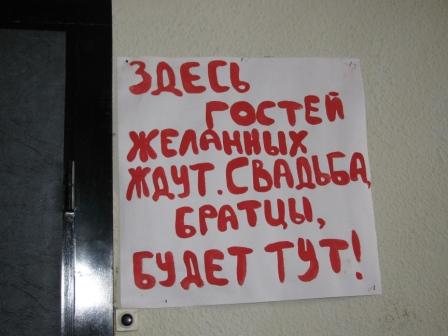 ЗДЕСЬ
ГОСТЕЙ
ЖЕЛАННЫХ
ЖДУТ. СВАДЬБА,
БРАТЦЫ,
БУДЕТ ТУТ!